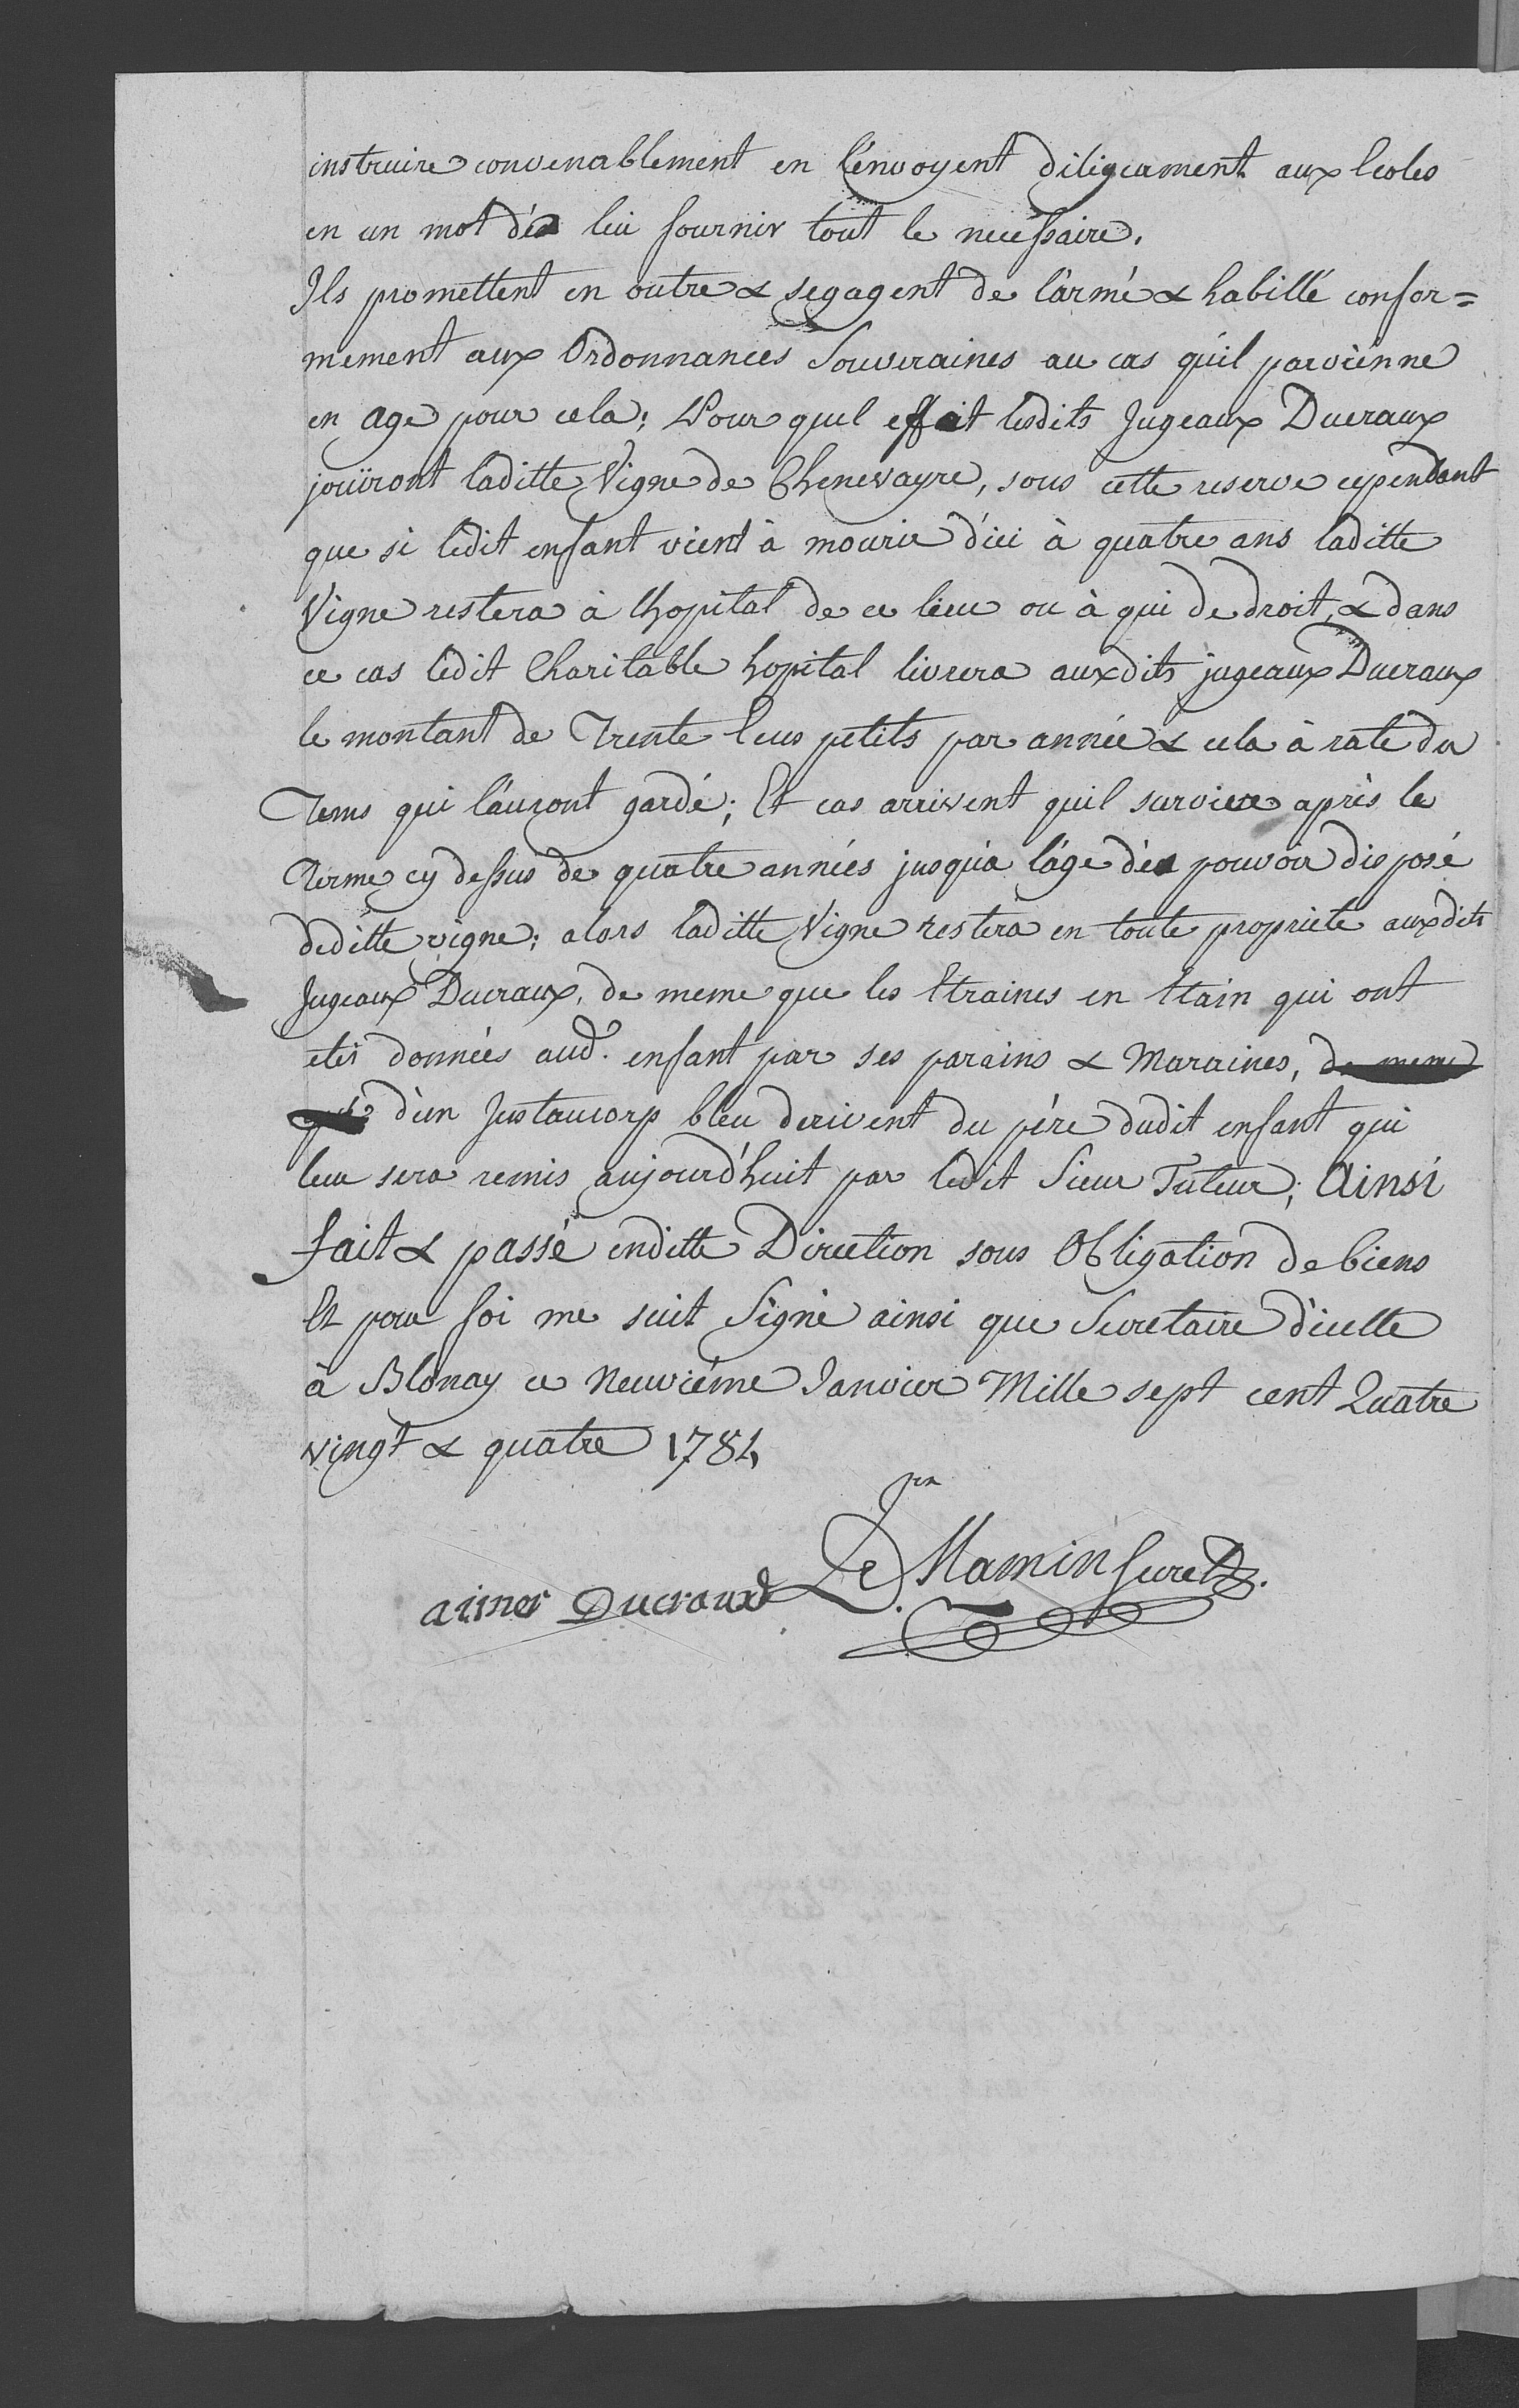 instruire convenablement en l'envoyent diligeament aux Ecoles
en un mot de lui fournir tout le necessaire.
Ils promettent en outre & segagent de l'armé & habillé confor=
mement aux Ordonnances Souveraines au cas qu'il parvienne
en age pour cela; Pour quel effait lesdits Jugeaux Ducraux
jouïront laditte Vigne de Chenevayre, sous cette reserve cependent
que si ledit enfant vient à mourir d'ici à quatre ans laditte
Vigne restera à l'hopital de ce lieu ou à qui de droit, & dans
ce cas ledit Charitable hopital livrera auxdits jugeaux Ducraux
le montant de Trente Ecus petits par année & cela à rate du
Tems qui l'auront gardé; Et cas arrivent quil survive après le
Terme cy dessus de quatre années jusqu'a l'áge de pouvoir disposé
deditte vigne; alors laditte Vigne restera en toute propriete auxdits
Jugeaux Ducraux, de meme que les Etraines en Etain qui ont
etés données aud. enfant par ses parains & Maraines, de meme
que d'un Justaucorp bleu derivent du père dudit enfant qui
leur sera remis aujourd'huit par ledit Sieur Tuteur; Ainsi
fait & passé enditte Direction sous Obligation de biens
Et pour foi me suit Signé ainsi que Secretaire d'icelle
à Blonay ce Neuvième Janvier Mille sept cent Quatre
vingt & quatre 1784
aimer Ducraux Mamin Secret.